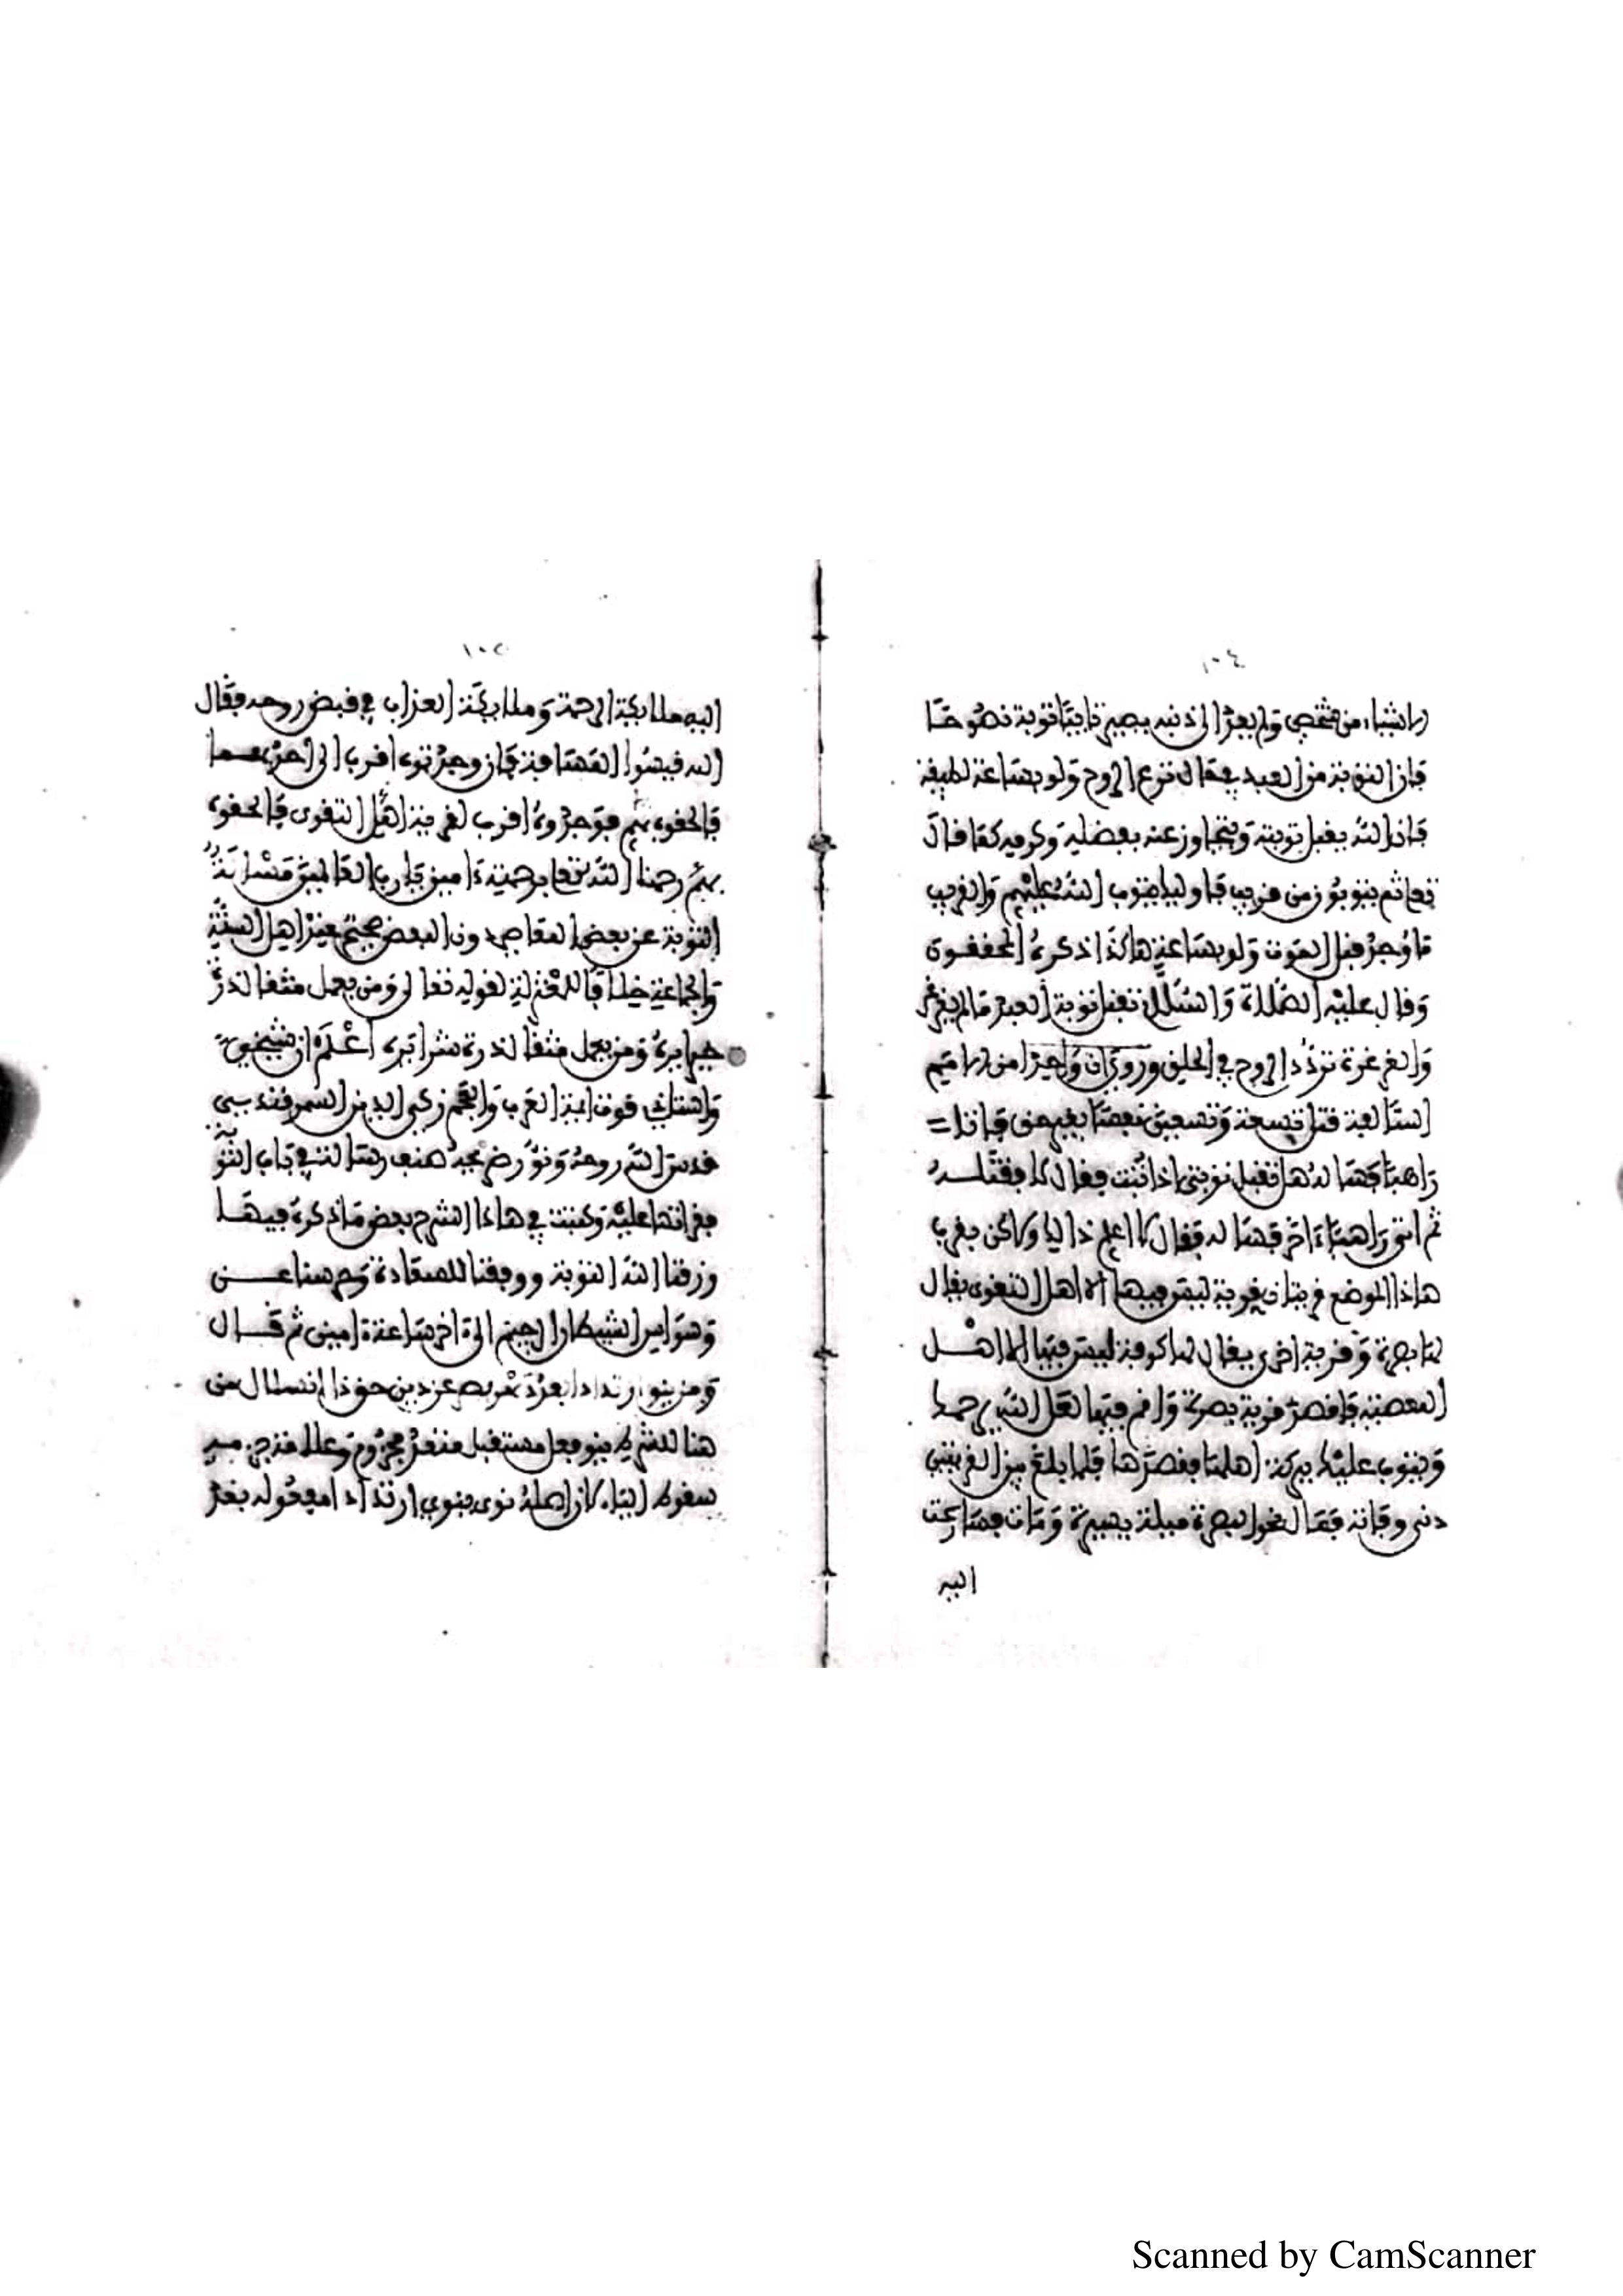 ١٠٤
الانشاء من شخص ولم يعد الى ذنبه يصير تايبا توبة نصوحا
فان التوبة من العبد يقال لنزع الروح ولو بساعة لطيفة
فان الله يقبل توبته ويتجاوز عنه بفضله وكرمه كما قال
تعا ثم يتوبون من قريب فاوليك يتوب الله عليهم والقريب
ما وجد قبل الموت ولو بساعة هاكذا ذكره المحققون
وقال عليه الصلاة والسلام تقبل توبة العبد ما لم يغرغر
والغرغرة تردد الروح في الحلق وروي ان واحدا من الامم
السالفة قتل تسعة وتسعين نفسا بغير حق فاتا
راهبا فقال له هل تقبل توبتي اذا تبت فقال لا فقتله
ثم اتى راهبا ءاخر فقال له فقال لا اعلم ذالك ولاكن بقرب
هاذا الموضع قريتان قرية ليس فيها الا اهل التقوى يقال
لها بصرة وقرية اخرى يقال لها كوفة ليس فيها الا اهل
المعصية فاقصد قرية بصرة واقم فيها لعل الله يرحمك
ويتوب عليك ببركة اهلها فقصدها فلما بلغ بين القريتين
دنى وفاته فقال نحول لبصرة ميلة يسيرة ومات فجاءت
اليه
١٠٥
اليه ملايكة الرحمة وملايكة العذاب في قبض روحه فقال
الله قيسوا المسافة فان وجدتوه اقرب الى احدهما
فالحقوه بهم فوجدوه اقرب لقرية اهل التقوى فالحقوه
بهم رحمنا الله تعا برحمته ءامين يارب العالمين مسالة
التوبة عن بعض المعاصي دون البعض صحيح عند اهل السنة
والجماعة خلافا للمعتزلة لقوله تعالى ومن يعمل مثقال ذرة
خيرا يره ومن يعمل مثقال ذرة شرا يره اعلم ان شيخي
واستاذي قوة ايمة العرب والعجم زكي الدين السمرقندي
قدس الله روحه ونور ضريحه صنف رسالة في باب التوبة
فقراتها عليه وكتبت في هاذا الشرح بعض ما ذكره فيها
رزقنا الله التوبة ووفقنا للسعادة وحرسنا عن
وسواس الشيطان الرجيم الى ءاخر ساعة ءامين ثم قال
ومن ينو ارتدادا بعد دهر يصر عن دين حق ذا انسلال من
هنا للشرط ينو فعل مستقبل متعد مجزوم وعلامة جزمه
سقوط الياء كان اصله نوى ينوي ارتدادا مفعوله بعد
Scanned by CamScanner